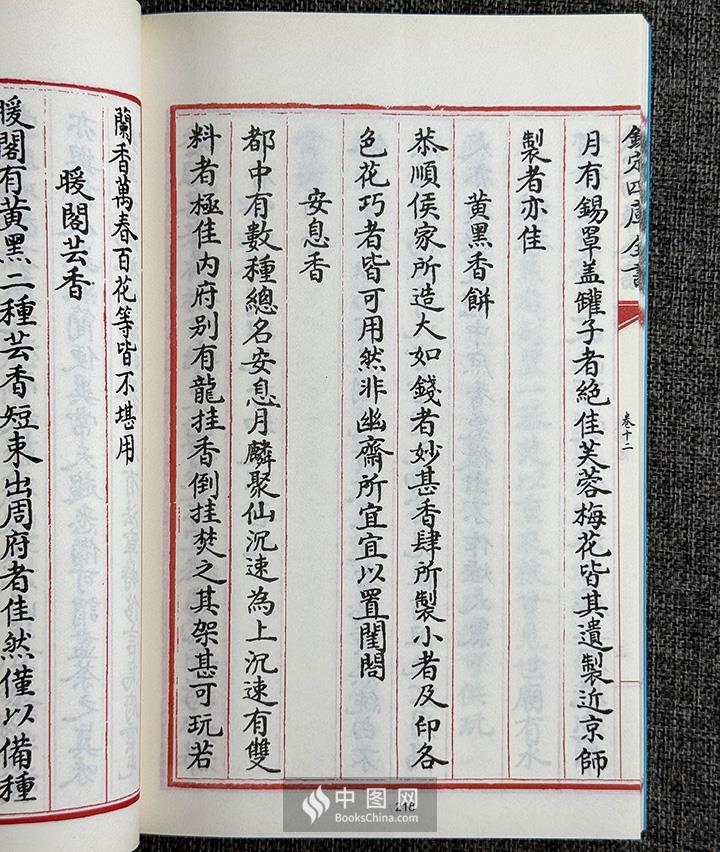 欽定四庫全書
卷十二
月有錫罩盖罐子者絶佳芙蓉梅花皆其遺製近京師
製者亦佳
黄黑香餅
恭順侯家所造大如錢者妙甚香肆所製小者及印各
色花巧者皆可用然非幽齋所宜宜以置閨閤
安息香
都中有數種總名安息月麟聚仙沉速為上沉速有雙
料者極佳内府别有龍挂香倒挂焚之其架甚可玩若
蘭香萬春百花等皆不堪用
暖閣芸香
暖閣有黄黑二種芸香短束出周府者佳然僅以備種
216
中图网
BooksChina.com